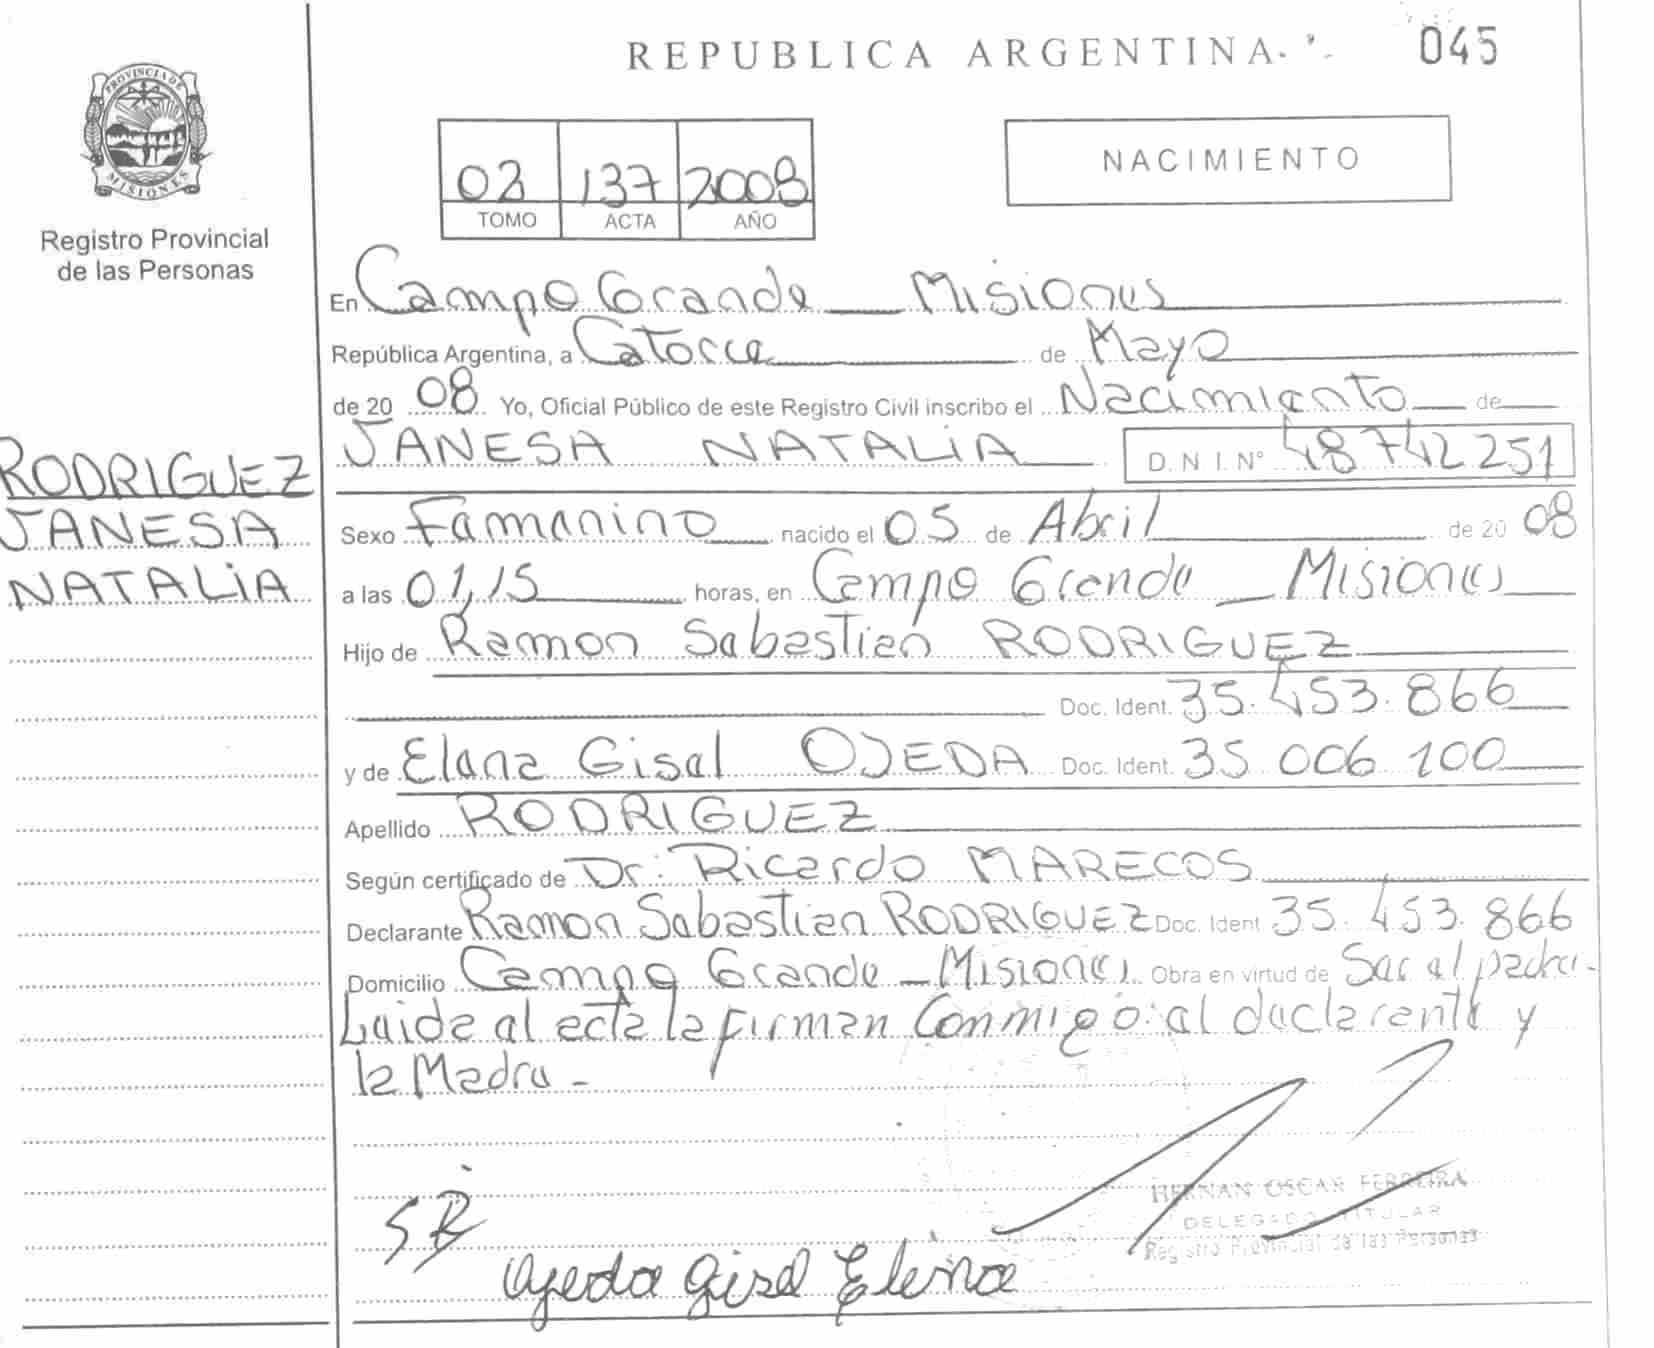 REPUBLICA ARGENTINA
045
PROVINCIA DE MISIONES
Registro Provincial
de las Personas
02 137 2008
TOMO ACTA AÑO
NACIMIENTO
En Campo Grande Misiones
República Argentina, a Catorce de Mayo
de 20 08 Yo, Oficial Público de este Registro Civil inscribo el Nacimiento de
JANESA NATALIA D. N I. N° 48 742 251
RODRIGUEZ
JANESA
NATALIA
Sexo Femenino nacido el 05 de Abril de 20 08
a las 01,15 horas, en Campo Grande _ Misiones
Hijo de Ramon Sebastian RODRIGUEZ
Doc. Ident. 35.453.866
y de Elena Gisel OJEDA Doc. Ident. 35 006 100
Apellido RODRIGUEZ
Según certificado de Dr: Ricardo MARECOS
Declarante Ramon Sebastian RODRIGUEZ Doc. Ident 35.453.866
Domicilio Campo Grande - Misiones Obra en virtud de Ser el padre-
Leida el acta la firman Conmigo: el declarante y
la Madre -
SR
Ojeda Gisel Elena
HERNAN OSCAR FERREIRA
DELEGADO TITULAR
Registro Provincial de las Personas